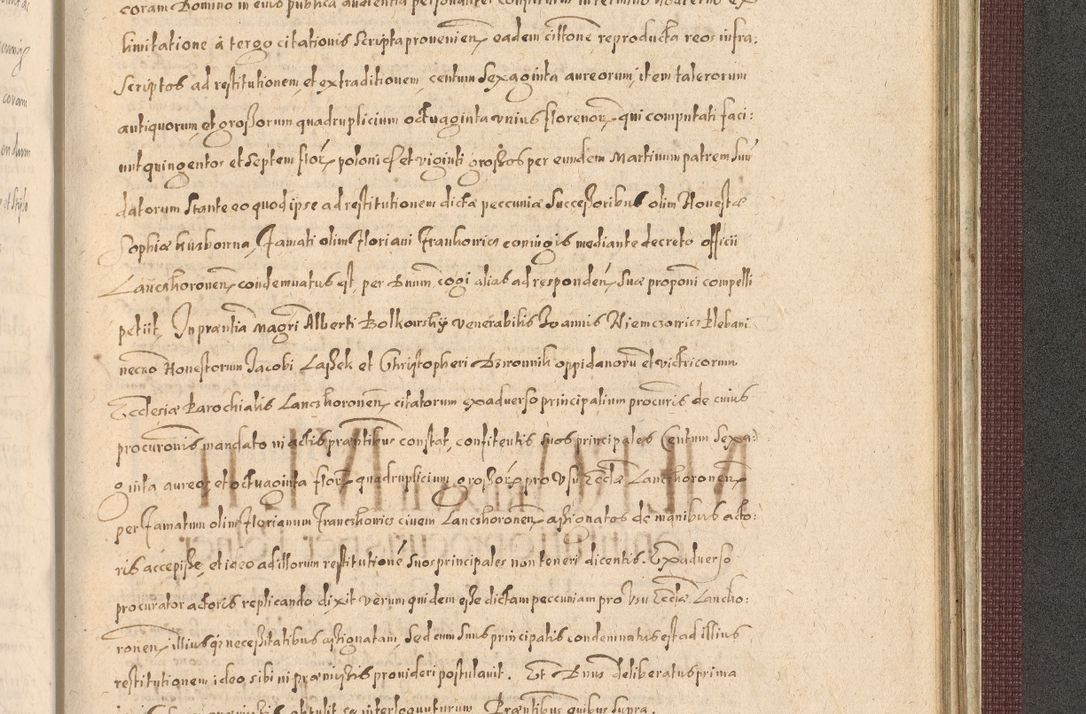 coram Domino in eius publica audientia personaliter
limitatione à tergo citationis scripta provenien, eadem cittone reproducta reos infra:
scriptos ad restitutionem et extraditionem, centum sexaginta aureorum, item talerorum
antiquorum, et grossorum quadruplicium octuaginta unius florenor, qui computati faci:
unt quingentos et septem flor, polonic et viginti grossos per eundem Martinum patrem suu
datorum stante eo quod ipse ad restitutionem dictæ peccuniæ successoribus olim Honestæ
Sophiæ Kusborna, Famati olim Floriani Frankowicz coniugis mediante decreto officii
Lanczkoronen condemnatus est, per Dnum cogi alias ad responden, suæ proponi compelli
petiit, In præntia Magri Alberti Bolkowskij venerabilis Joannis Niemczowicz Plebani
necno Honestorum Jacobi Lassek et Christopheri Dzwonnik oppidanoru et victricorum
Ecclesiæ Parochialis Lanczkoronen, citatorum ex adverso principalium procuris de cuius
procuronis mandato ni actis præntibus constat, confitentis suos principales Centum sexa:
ginta aureos et octuaginta flor, quadruplicium grossoru pro usu Eccliæ Lanczkoronen,
per Famatum olim Florianum Franczkowicz civem Lanczkoronen, assignatos de manibus acto:
ris accepisse, et ideo ad illorum restitutione suos principales non teneri dicentis. Ex adverso
procurator actoris replicando dixit verum quidem esse dictam peccuniam pro usu Eccliæ Lancko:
ronen, illiusq necessitatibus assignatam, sed cum suus principalis condemnatus est ad illius
restitutionem ideo, sibi ni præmissis provideri postulavit. Et Dnus deliberatus prima
obtulit se interloquuturum Præntibus quibus supra.